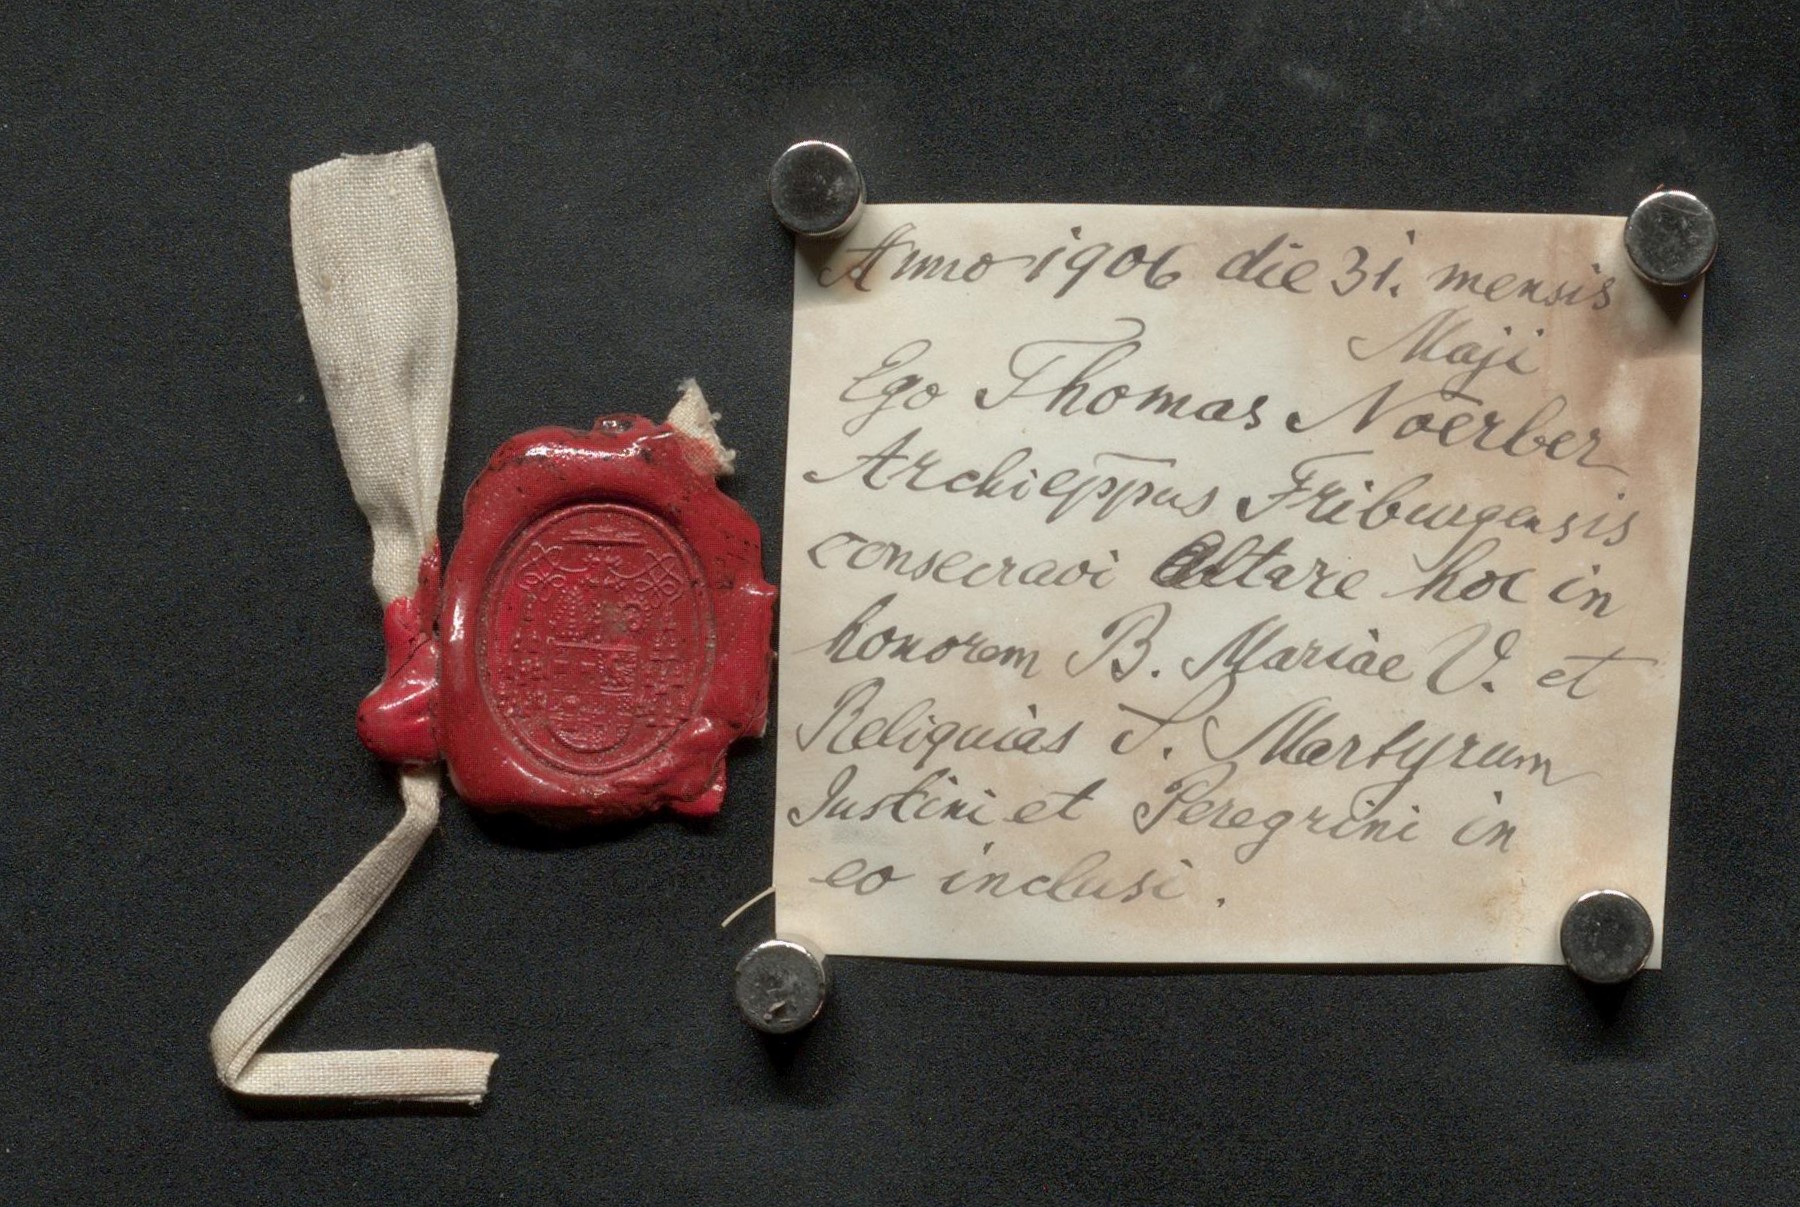 Anno 1906 die 31. mensis
Maji
Ego Thomas Noerber
Archieppus Friburgensis
consecravi Altare hoc in
honorem B. Mariae V. et
Reliquias S. Martyrum
Justini et Peregrini in
eo inclusi.